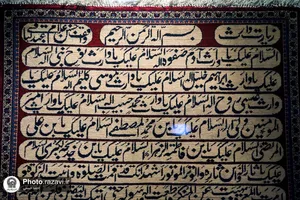 زیارت وارث بسم الله الرحمن الرحیم
السلام علیک یا وارث آدم صفوة الله السلام علیک یا وارث نوح نبی الله السلام
علیک یا وارث ابراهیم خلیل الله السلام علیک یا وارث موسی کلیم الله السلام علیک یا
وارث عیسی روح الله السلام علیک یا وارث محمد حبیب الله السلام علیک یا وارث امیر
المؤمنین ولی الله السلام علیک یابن محمد المصطفی السلام علیک یابن علی
المرتضی السلام علیک یابن فاطمة الزهراء السلام علیک یابن خدیجة الکبری السلام
علیک یا ثار الله وابن ثاره والوتر الموتور اشهد انک قد اقمت الصلوة و
Photo.razavi.ir